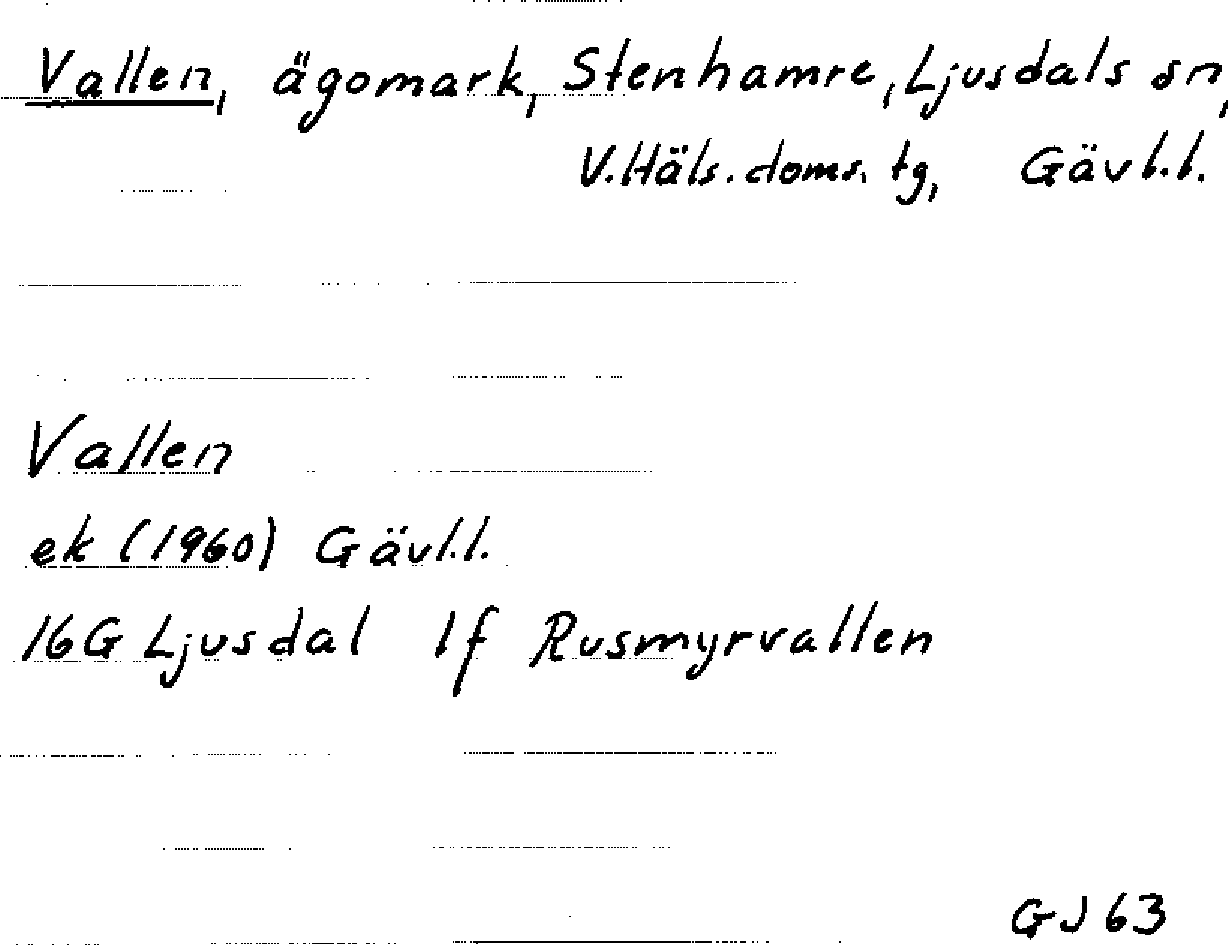 Vallen, ägomark, Stenhamre, Ljusdals sn,
V.Häls.doms.tg, Gävl.l.
Vallen
ek (1960) Gävl.l.
16G Ljusdal 1f Rusmyrvallen
GJ 63